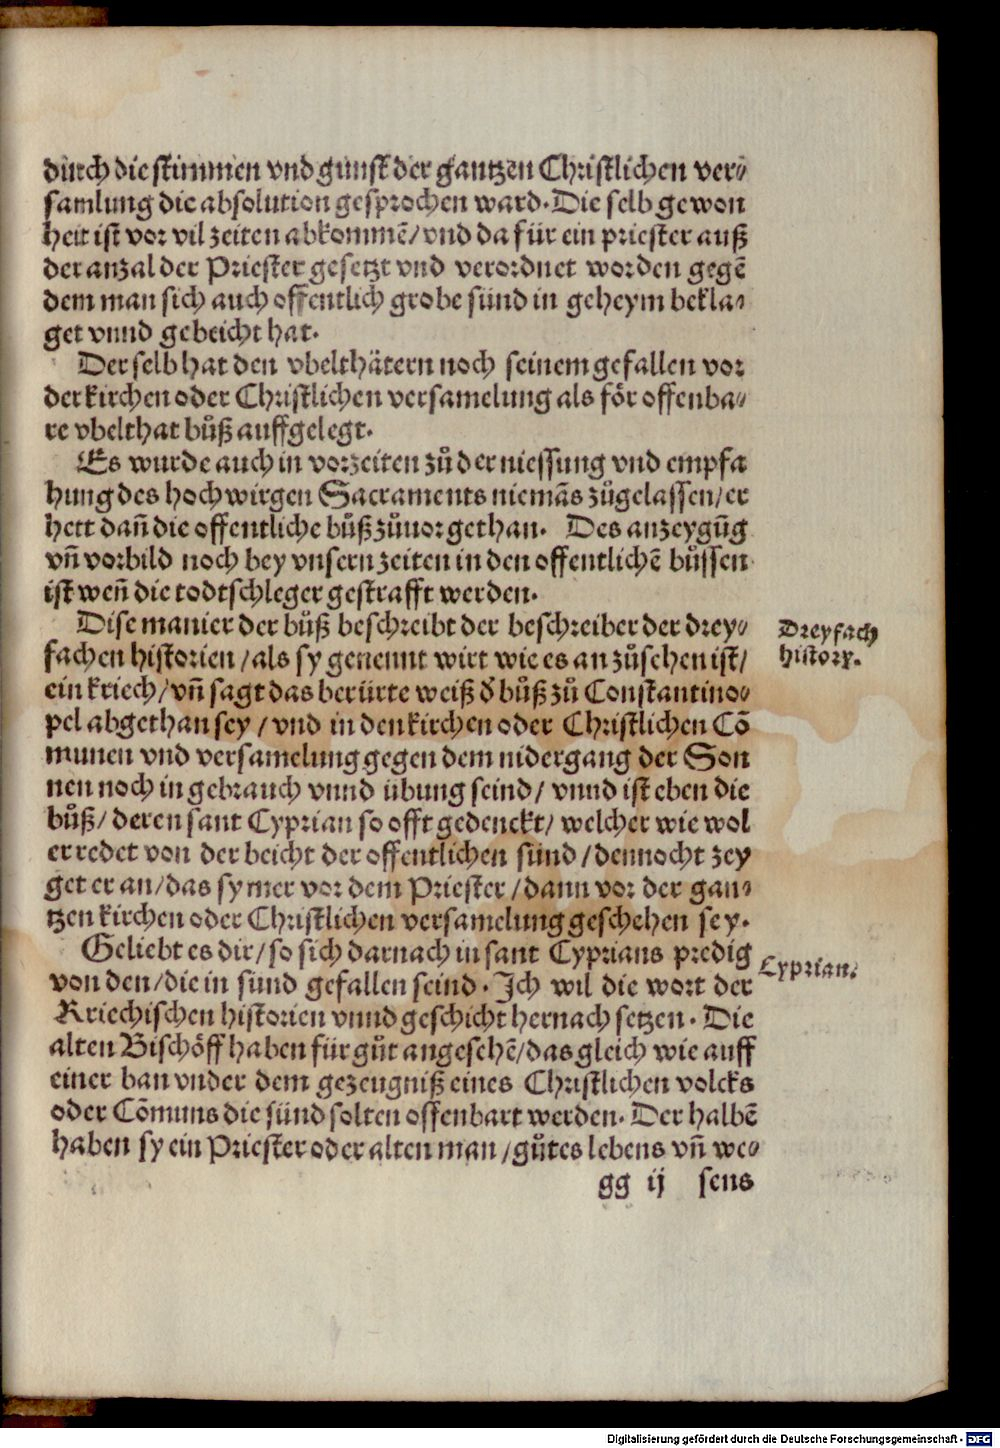 durch die stimmen vnd gunst der gantzen Christlichen ver⸗
samlung die absolution gesprochen ward. Die selb gewon
heit ist vor vil zeiten abkommē/ vnd da für ein priester auß
der anzal der Priester gesetzt vnd verordnet worden gegē
dem man sich auch offentlich grobe sünd in geheym bekla⸗
get vnnd gebeicht hat.
Der selb hat den vbelthätern noch seinem gefallen vor
der kirchen oder Christlichen versamelung als fór offenba⸗
re vbelthat bůß auffgelegt.
Es wurde auch in vorzeiten zů der niessung vnd empfa
hung des hochwirgen Sacraments niemās zůgelassen/ er
hett dañ die offentliche bůß zůuor gethan. Des anzeygūg
vñ vorbild noch bey vnsern zeiten in den offentlichē bůssen
ist weñ die todtschleger gestrafft werden.
Dise manier der bůß beschreibt der beschreiber der drey⸗
fachen historien/ als sy genennt wirt wie es an zůsehen ist/
ein kriech/ vñ sagt das berürte weiß d̄ bůß zů Constantino⸗
pel abgethan sey/ vnd in den kirchen oder Christlichen Cō
munen vnd versamelung gegen dem nidergang der Son
nen noch in gebrauch vnnd übung seind/ vnnd ist eben die
bůß/ deren sant Cyprian so offt gedenckt/ welcher wie wol
er redet von der beicht der offentlichen sünd/ dennocht zey
get er an/ das sy mer vor dem Priester/ dann vor der gan⸗
tzen kirchen oder Christlichen versamelung geschehen sey.
Geliebt es dir/ so sich darnach in sant Cyprians predig
von den/ die in sünd gefallen seind. Ich wil die wort der
Kriechischen historien vnnd geschicht hernach setzen. Die
alten Bischöff haben für gůt angesehē/ das gleich wie auff
einer ban vnder dem gezeugniß eines Christlichen volcks
oder Cōmuns die sünd solten offenbart werden. Der halbē
haben sy ein Priester oder alten man/ gůtes lebens vñ we⸗
gg ij sens
Dreyfach
history.
Cyprian.
Digitalisierung gefördert durch die Deutsche Forschungsgemeinschaft - DFG